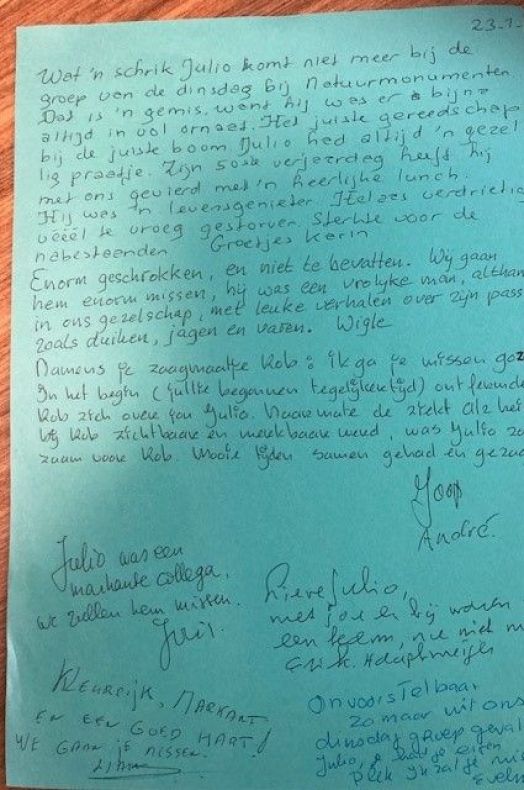 23-1-
Wat 'n schrik Julio komt niet meer bij de
groep van de dinsdag bij Natuurmonumenten
Dat is 'n gemis, want hij was er bijna
altijd in vol ornaat. Het juiste gereedschap
bij de juiste boom. Julio had altijd 'n gezel
lig praatje. Zijn 50ste verjaardag heeft hij
met ons gevierd met 'n heerlijke lunch.
Hij was 'n levensgenieter. Helaas verdrietig
véél te vroeg gestorven. Sterkte voor de
nabestaanden Groetjes Karin
Enorm geschrokken, en niet te bevatten. Wij gaan
hem enorm missen, hij was een vrolijke man, althan
in ons gezelschap, met leuke verhalen over zijn pass
zoals duiken, jagen en varen. Wigle
Namens je zaagmaatje Rob: ik ga je missen goz
In het begin (jullie begonnen tegelijkertijd) ontfermde
Rob zich over jou Julio. Naarmate de ziekte Alzhei
bij Rob zichtbaar en merkbaar werd, was Julio zo
zaam voor Rob. Mooie tijden samen gehad en gezaa
Joop
André.
Julio was een
markante collega.
we zullen hem missen.
Lieve Julio,
met jou er bij waren
een team, nu niet m
Kleurrijk, Markant
en een goed hart!
We gaan je missen.
Onvoorstelbaar
zo maar uit ons
dinsdaggroep geval
Julio, je had je eigen
plek ik zal je mis
Eveli